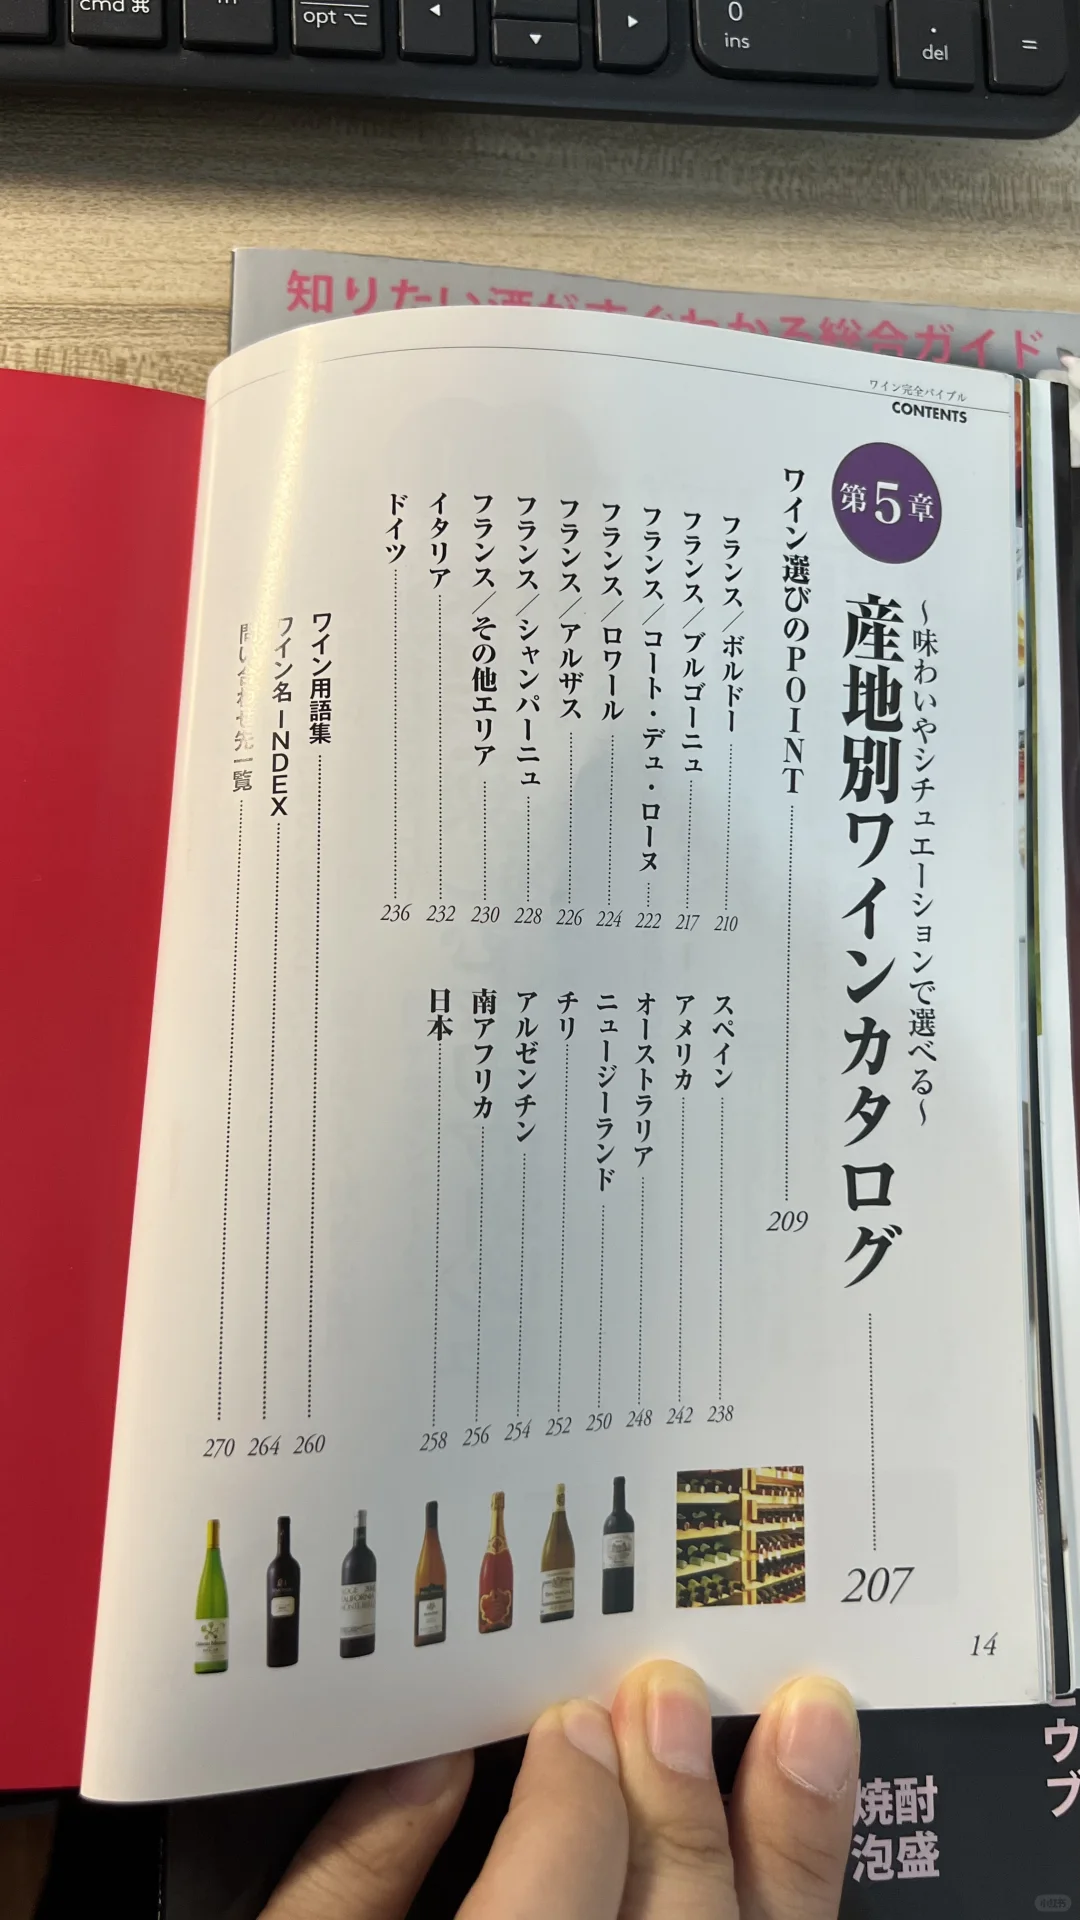 cmd ⌘
opt ⌥
◀
▼
▶
0
ins
.
del
=
知りたい酒がすぐわかる総合ガイド
ワイン完全バイブル
CONTENTS
第5章
〜味わいやシチュエーションで選べる〜
産地別ワインカタログ 207
ワイン選びのPOINT 209
フランス／ボルドー 210
フランス／ブルゴーニュ 217
フランス／コート・デュ・ローヌ 222
フランス／ロワール 224
フランス／アルザス 226
フランス／シャンパーニュ 228
フランス／その他エリア 230
イタリア 232
ドイツ 236
スペイン 238
アメリカ 242
オーストラリア 248
ニュージーランド 250
チリ 252
アルゼンチン 254
南アフリカ 256
日本 258
ワイン用語集 260
ワイン名INDEX 264
問い合わせ先一覧 270
14
ウブ
焼酎
泡盛
小红书